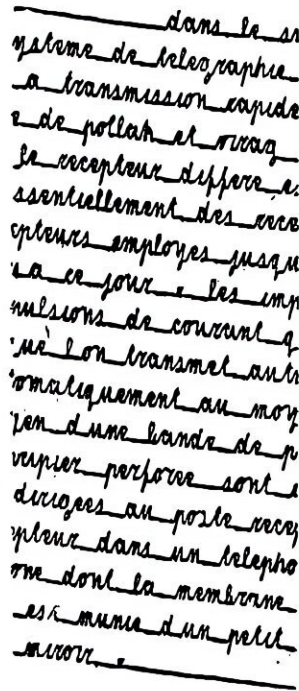 dans le sy
ysteme de telegraphie
a transmission rapide
e de pollak et virag
le recepteur differe es
ssentiellement des rece
cepteurs employes jusqu
ua ce jour . les imp
mulsions de courant q
que l on transmet auto
omatiquement au moy
yen d une bande de p
papier perforee sont
dirigees au poste recep
epteur dans un telepho
one dont la membrane
est munie d un petit
miroir .